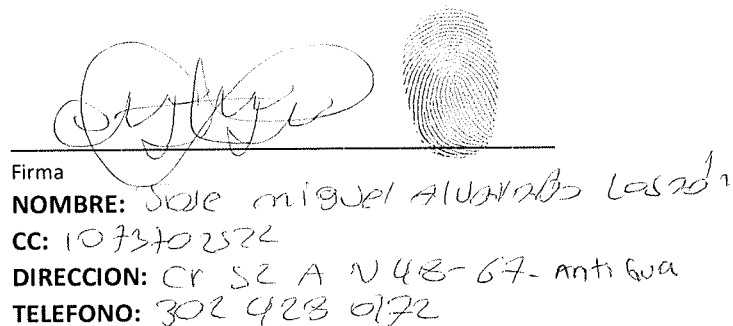 Firma
NOMBRE: Jose miguel Alvarado
CC: 1073702522
DIRECCION: Cr 52 A N 48-67- Antigua
TELEFONO: 302 428 0172